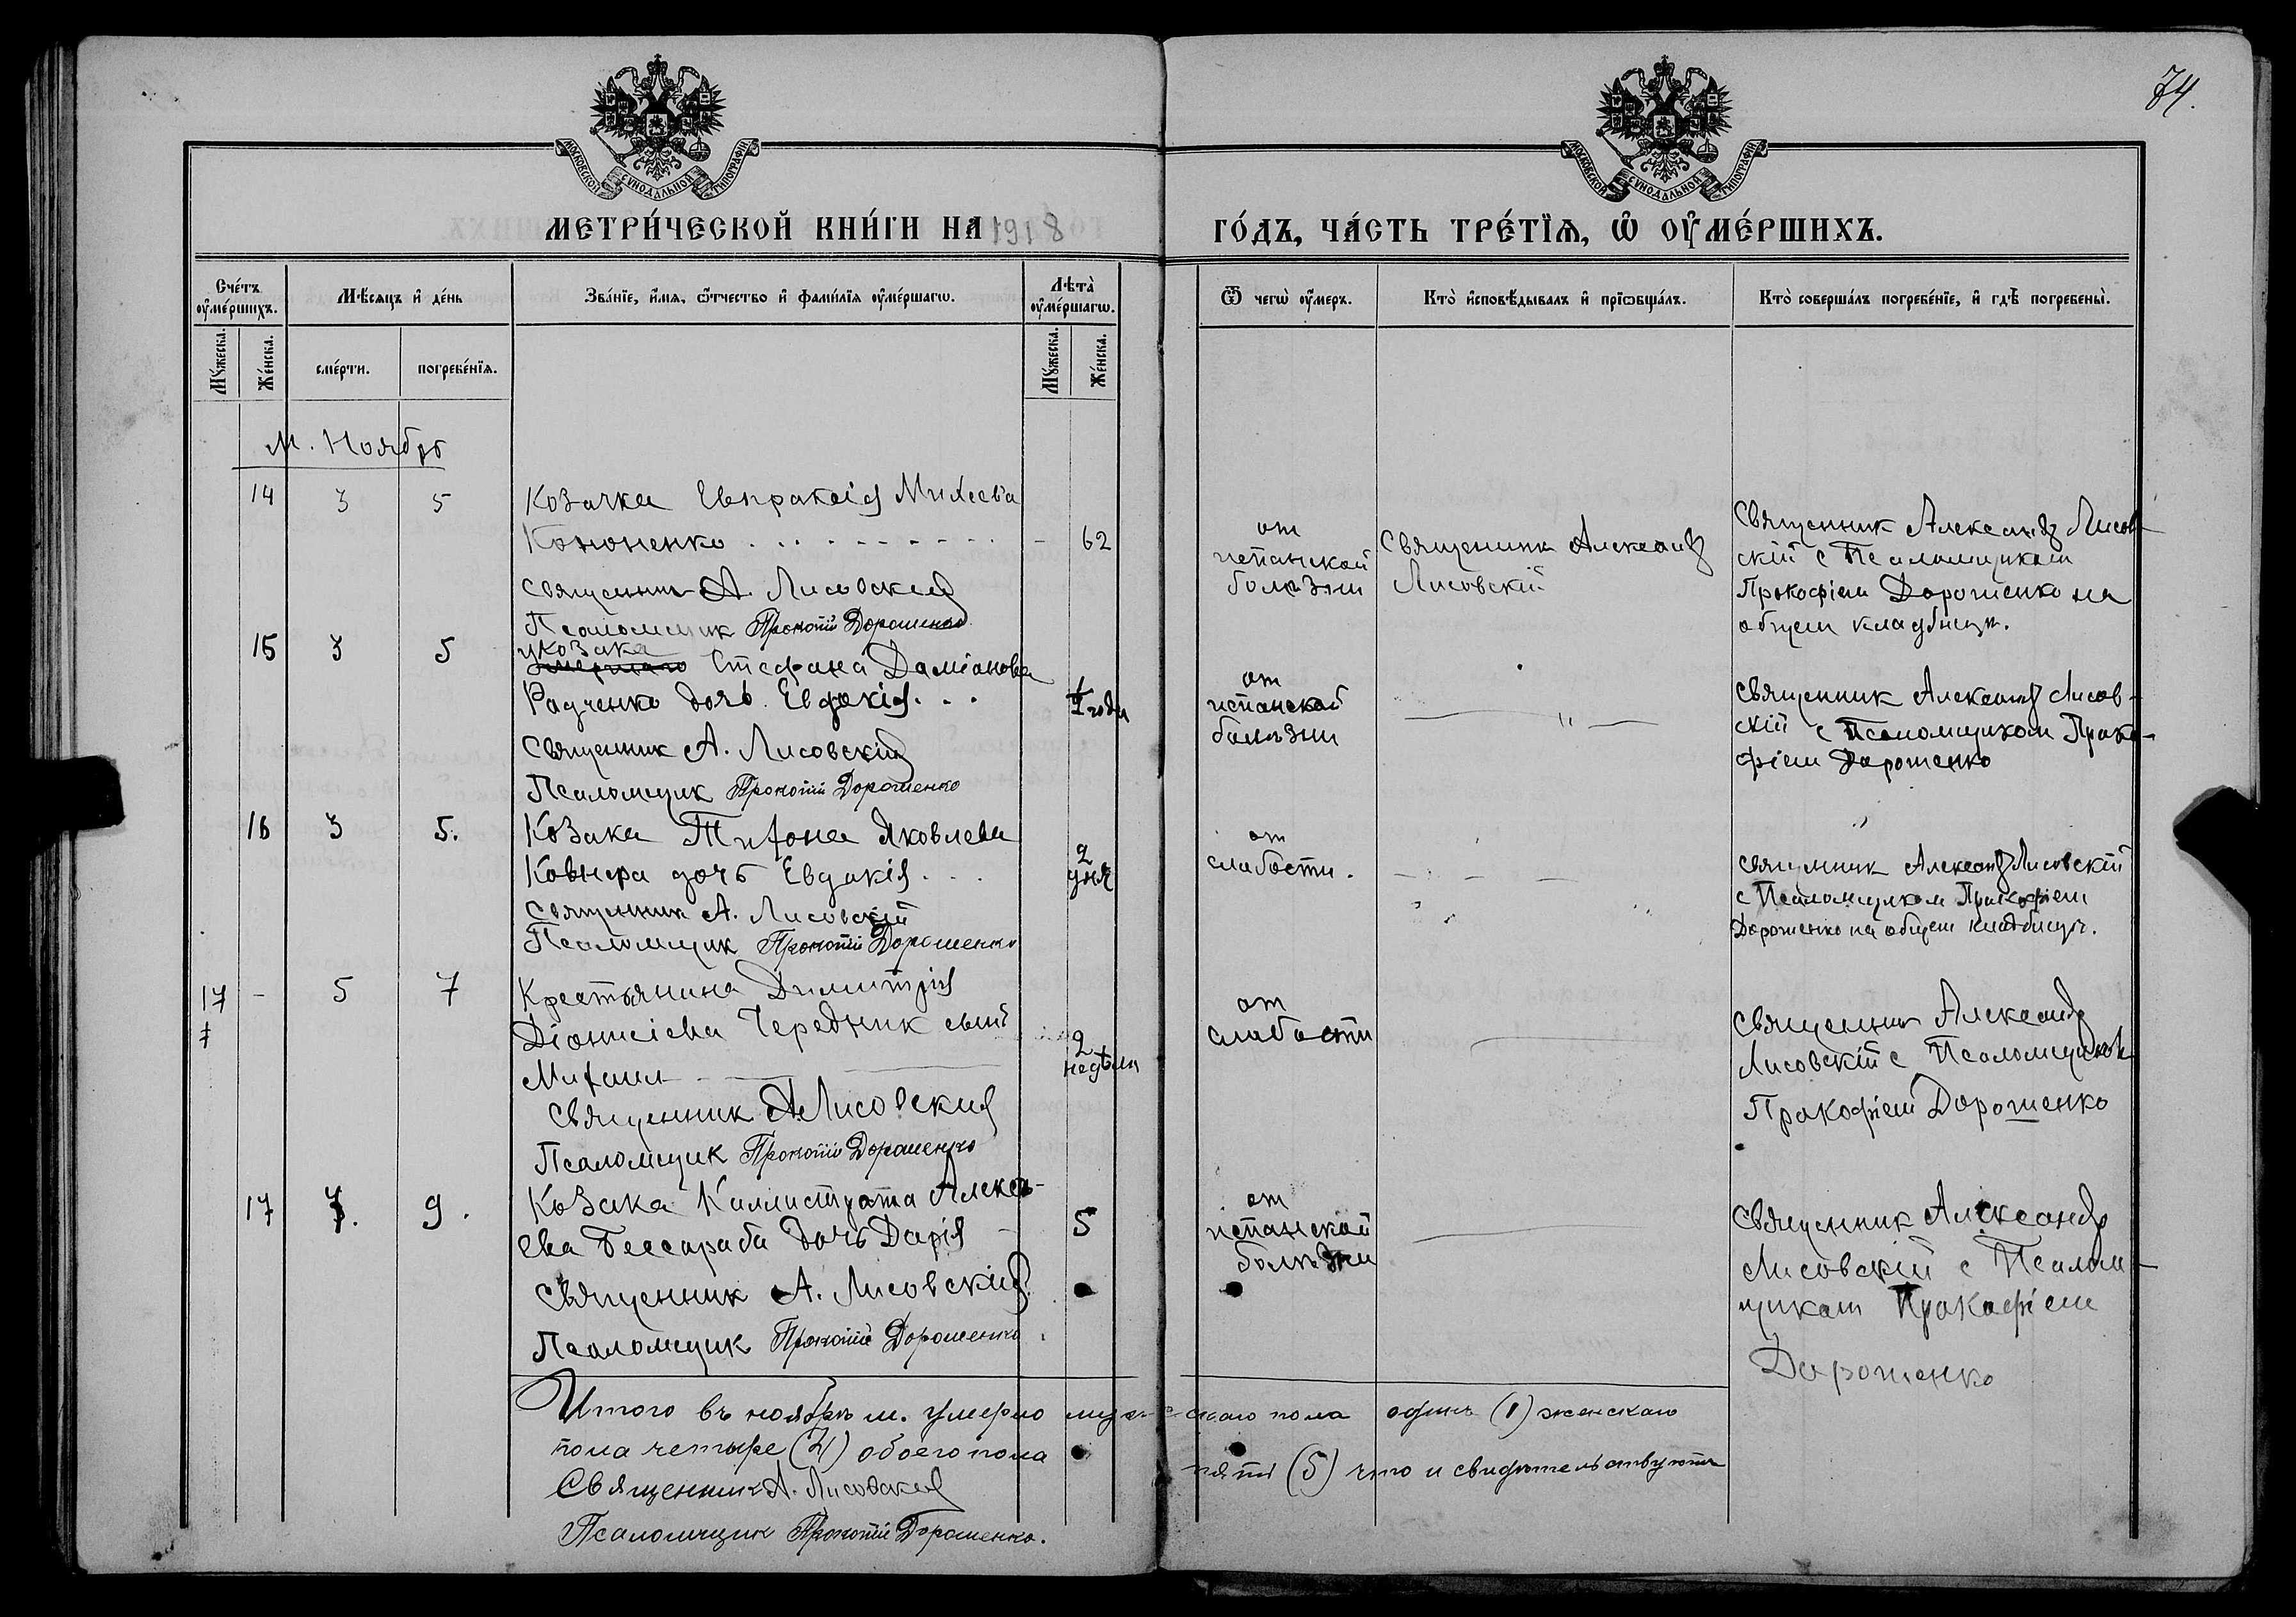 74.
МОСКОВСКОЙ СѴНОДАЛЬНОЙ ТИПОГРАФІИ
МОСКОВСКОЙ СѴНОДАЛЬНОЙ ТИПОГРАФІИ
МЕТРИ́ЧЕСКОЙ КНИ́ГИ НА 1918 ГО́ДЪ, ЧА́СТЬ ТРЕ́ТЇѦ, Ѡ҆ ОУ҆МЕ́РШИХЪ.
Сче́тъ оу҆ме́ршихъ.
Мѣ́сяцъ и҆ де́нь
Зва́нїе, и҆́мѧ, ѻ҆́тчество и҆ фами́лїѧ оу҆ме́ршагѡ.
Лѣта̀ оу҆ме́ршагѡ.
Ѿ чегѡ̀ оу҆́меръ.
Кто̀ и҆сповѣ́дывалъ и҆ прїѡбща́лъ.
Кто̀ соверша́лъ погребе́нїе, и҆ гдѣ̀ погребены̀.
Мꙋ́жеска.
Же́нска.
сме́рти.
погребе́нїѧ.
Мꙋ́жеска.
Же́нска.
М. Ноябрь
14 3 5 Козачка Евпраксія Михеева
Кононенко - 62
Священник А. Лисовский
Псаломщик Прокопій Дорошенко
от
испанской
болѣзни
Священник Александр
Лисовскій
Священник Александр Лисов-
скій с Псаломщиком
Прокофіем Дорошенко на
общем кладбищѣ.
15 3 5 у козака
Стефана Даміанова
Радченко дочь Евдокія 1 года
Священник А. Лисовскій
Псаломщик Прокопій Дорошенко
от
испанской
болѣзни
— " —
Священник Александр Лисов-
скій с Псаломщиком Проко-
фіем Дорошенко
16 3 5. Козака Тихона Яковлева
Ковнера дочь Евдокія 2 дня
Священник А. Лисовскій
Псаломщик Прокопій Дорошенко
от
слабости.
Священник Александр Лисовскій
с Псаломщиком Прокофіем
Дорошенко на общем кладбищѣ.
17 - 5 7 Крестьянина Димитрія
Діонисіева Чередник сын
Михаил 2 недѣли
Священник А. Лисовский
Псаломщик Прокопій Дорошенко
от
слабости
Священник Александр
Лисовскій с Псаломщиком
Прокофіем Дорошенко
17 7. 9. Козака Каллистрата Алексѣ-
ева Бессараба дочь Дарія - 5
Священник А. Лисовскій
Псаломщик Прокопій Дорошенко
от
испанской
болѣзни
Священник Александр
Лисовскій с Псалом-
щиком Прокофіем
Дорошенко
Итого въ ноябрѣ м. умерло мужескаго пола один (1) женскаго
пола четыре (4) обоего пола пять (5) что и свидѣтельствуютъ
Священник А. Лисовский
Псаломщик Прокопій Дорошенко.